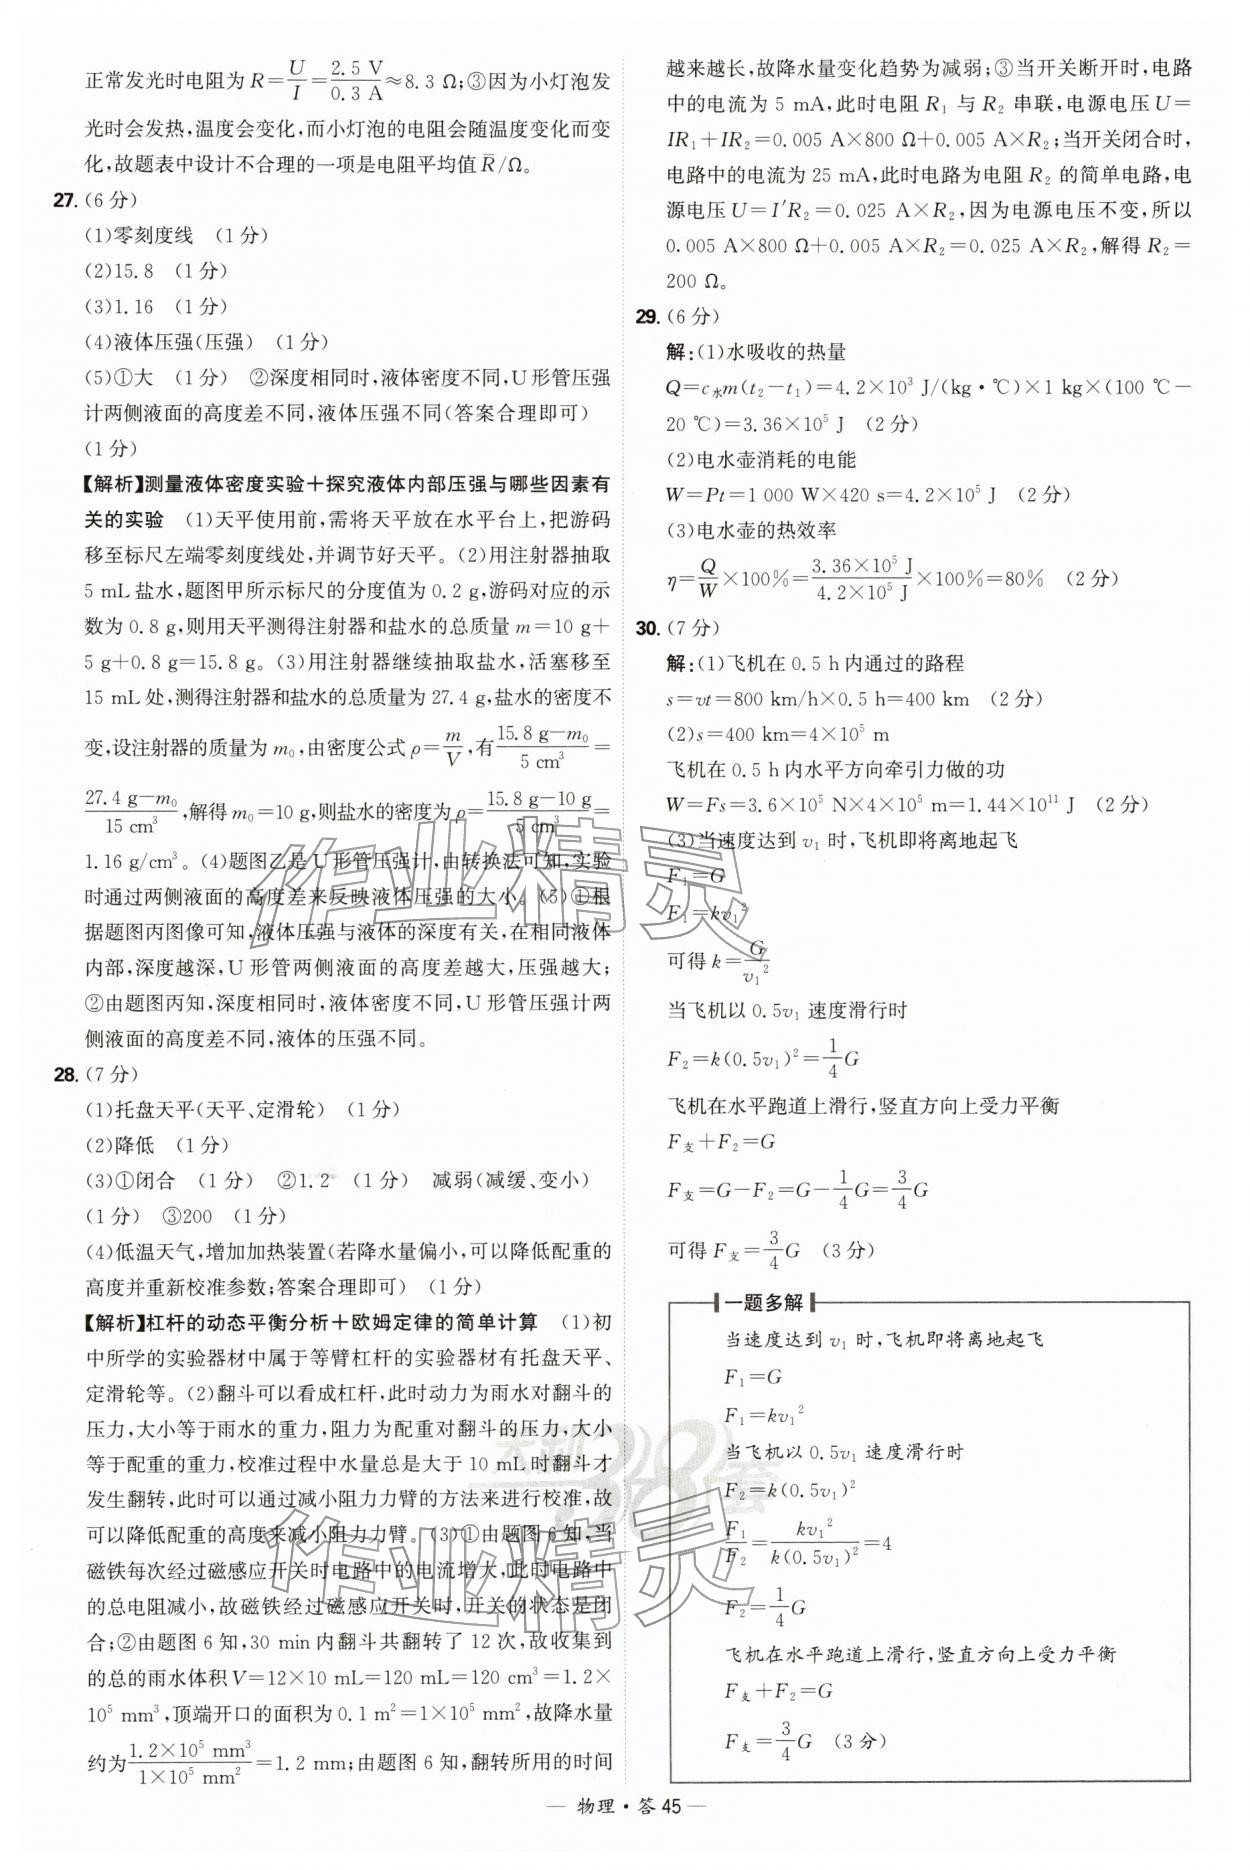 正常发光时电阻为 R=U/I=2.5 V/0.3 A≈8.3 Ω;③因为小灯泡发
光时会发热,温度会变化,而小灯泡的电阻会随温度变化而变
化,故题表中设计不合理的一项是电阻平均值 R̄/Ω。
27.(6 分)
(1)零刻度线 (1 分)
(2)15.8 (1 分)
(3)1.16 (1 分)
(4)液体压强(压强) (1 分)
(5)①大 (1 分) ②深度相同时,液体密度不同,U 形管压强
计两侧液面的高度差不同,液体压强不同(答案合理即可)
(1 分)
【解析】测量液体密度实验+探究液体内部压强与哪些因素有
关的实验 (1)天平使用前,需将天平放在水平台上,把游码
移至标尺左端零刻度线处,并调节好天平。(2)用注射器抽取
5 mL 盐水,题图甲所示标尺的分度值为 0.2 g,游码对应的示
数为 0.8 g,则用天平测得注射器和盐水的总质量 m=10 g+
5 g+0.8 g=15.8 g。(3)用注射器继续抽取盐水,活塞移至
15 mL 处,测得注射器和盐水的总质量为 27.4 g,盐水的密度不
变,设注射器的质量为 m₀,由密度公式 ρ=m/V,有(15.8 g-m₀)/5 cm³=
(27.4 g-m₀)/15 cm³,解得 m₀=10 g,则盐水的密度为 ρ=(15.8 g-10 g)/5 cm³=
1.16 g/cm³。(4)题图乙是 U 形管压强计,由转换法可知,实验
时通过两侧液面的高度差来反映液体压强的大小。(5)①根
据题图丙图像可知,液体压强与液体的深度有关,在相同液体
内部,深度越深,U 形管两侧液面的高度差越大,压强越大;
②由题图丙知,深度相同时,液体密度不同,U 形管压强计两
侧液面的高度差不同,液体的压强不同。
28.(7 分)
(1)托盘天平(天平、定滑轮) (1 分)
(2)降低 (1 分)
(3)①闭合 (1 分) ②1.2 (1 分) 减弱(减缓、变小)
(1 分) ③200 (1 分)
(4)低温天气,增加加热装置(若降水量偏小,可以降低配重的
高度并重新校准参数;答案合理即可) (1 分)
【解析】杠杆的动态平衡分析+欧姆定律的简单计算 (1)初
中所学的实验器材中属于等臂杠杆的实验器材有托盘天平、
定滑轮等。(2)翻斗可以看成杠杆,此时动力为雨水对翻斗的
压力,大小等于雨水的重力,阻力为配重对翻斗的压力,大小
等于配重的重力,校准过程中水量总是大于 10 mL时翻斗才
发生翻转,此时可以通过减小阻力力臂的方法来进行校准,故
可以降低配重的高度来减小阻力力臂。(3)①由题图 6 知,当
磁铁每次经过磁感应开关时电路中的电流增大,此时电路中
的总电阻减小,故磁铁经过磁感应开关时,开关的状态是闭
合;②由题图 6 知,30 min 内翻斗共翻转了 12 次,故收集到
的总的雨水体积 V=12×10 mL=120 mL=120 cm³=1.2×
10⁵ mm³,顶端开口的面积为 0.1 m²=1×10⁵ mm²,故降水量
约为(1.2×10⁵ mm³)/(1×10⁵ mm²)=1.2 mm;由题图 6 知,翻转所用的时间
越来越长,故降水量变化趋势为减弱;③当开关断开时,电路
中的电流为 5 mA,此时电阻 R₁ 与 R₂ 串联,电源电压 U=
IR₁+IR₂=0.005 A×800 Ω+0.005 A×R₂;当开关闭合时,
电路中的电流为 25 mA,此时电路为电阻 R₂ 的简单电路,电
源电压 U=I′R₂=0.025 A×R₂,因为电源电压不变,所以
0.005 A×800 Ω+0.005 A×R₂=0.025 A×R₂,解得 R₂=
200 Ω。
29.(6 分)
解:(1)水吸收的热量
Q=c水m(t₂-t₁)=4.2×10³ J/(kg·℃)×1 kg×(100 ℃-
20 ℃)=3.36×10⁵ J (2 分)
(2)电水壶消耗的电能
W=Pt=1 000 W×420 s=4.2×10⁵ J (2 分)
(3)电水壶的热效率
η=Q/W×100%=(3.36×10⁵ J)/(4.2×10⁵ J)×100%=80% (2 分)
30.(7 分)
解:(1)飞机在 0.5 h内通过的路程
s=vt=800 km/h×0.5 h=400 km (2 分)
(2)s=400 km=4×10⁵ m
飞机在 0.5 h内水平方向牵引力做的功
W=Fs=3.6×10⁵ N×4×10⁵ m=1.44×10¹¹ J (2 分)
(3)当速度达到 v₁ 时,飞机即将离地起飞
F₁=G
F₁=kv₁²
可得 k=G/v₁²
当飞机以 0.5v₁ 速度滑行时
F₂=k(0.5v₁)²=1/4G
飞机在水平跑道上滑行,竖直方向上受力平衡
F支+F₂=G
F支=G-F₂=G-1/4G=3/4G
可得 F支=3/4G (3 分)
一题多解
当速度达到 v₁ 时,飞机即将离地起飞
F₁=G
F₁=kv₁²
当飞机以 0.5v₁ 速度滑行时
F₂=k(0.5v₁)²
F₁/F₂=kv₁²/k(0.5v₁)²=4
F₂=1/4G
飞机在水平跑道上滑行,竖直方向上受力平衡
F支+F₂=G
F支=3/4G (3 分)
— 物理·答 45 —
作业精灵
天利38套
作业精灵